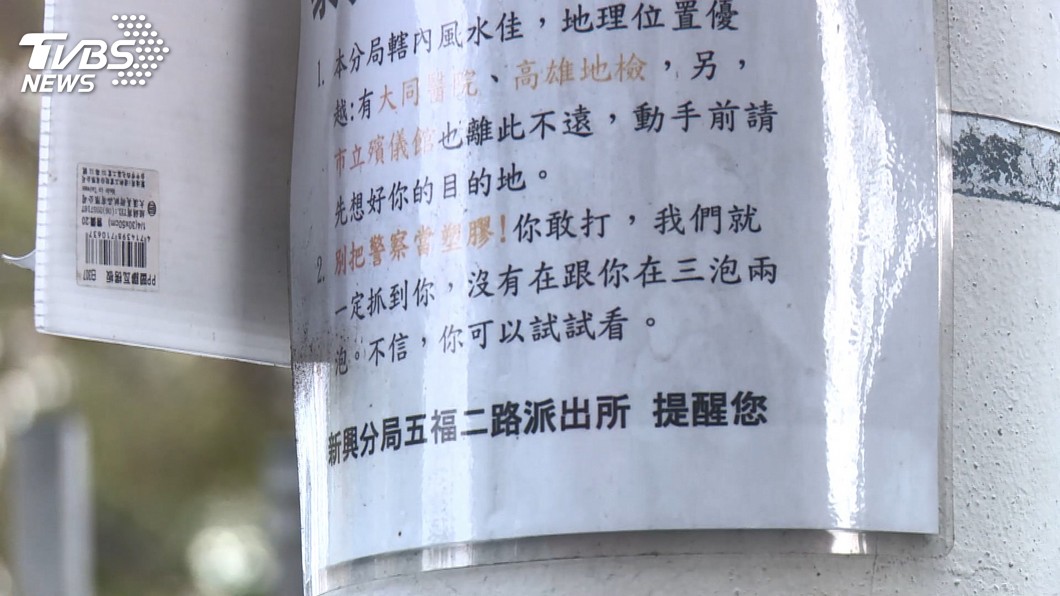 TVBS
NEWS
1. 本分局轄內風水佳，地理位置優
越:有大同醫院、高雄地檢，另，
市立殯儀館也離此不遠，動手前請
先想好你的目的地。
2. 別把警察當塑膠!你敢打，我們就
一定抓到你，沒有在跟你在三泡兩
泡。不信，你可以試試看。
新興分局五福二路派出所 提醒您
PP
Made in Taiwan